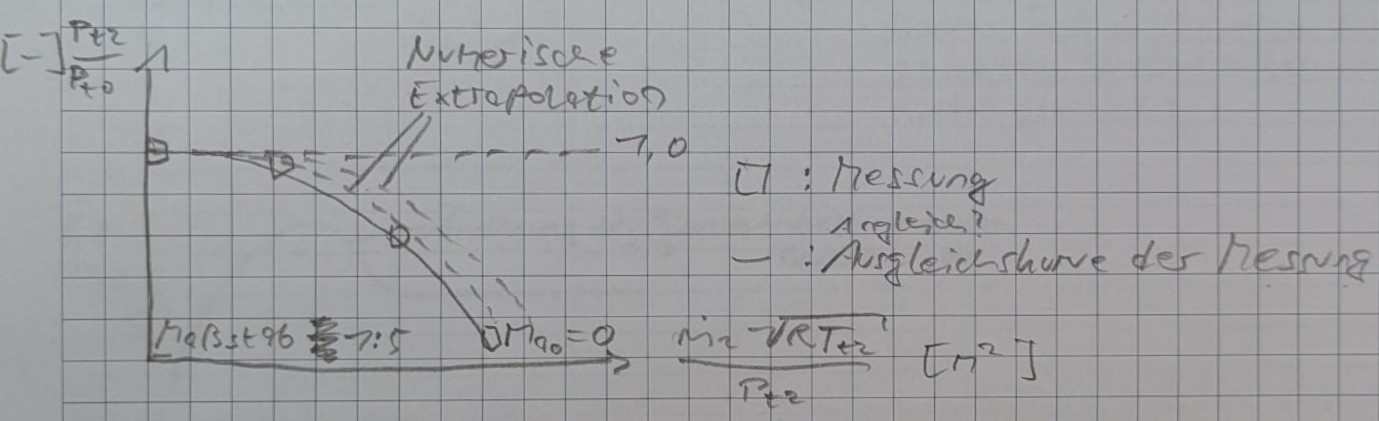 [-] Pt2/Pt0
Numerische
Extrapolation
1,0
□ : Messung
Angleich?
— : Ausgleichskurve der Messung
Maßstab 1:5
Ma0 = 0
ṁ2 √(R Tt2) / Pt2 [m²]